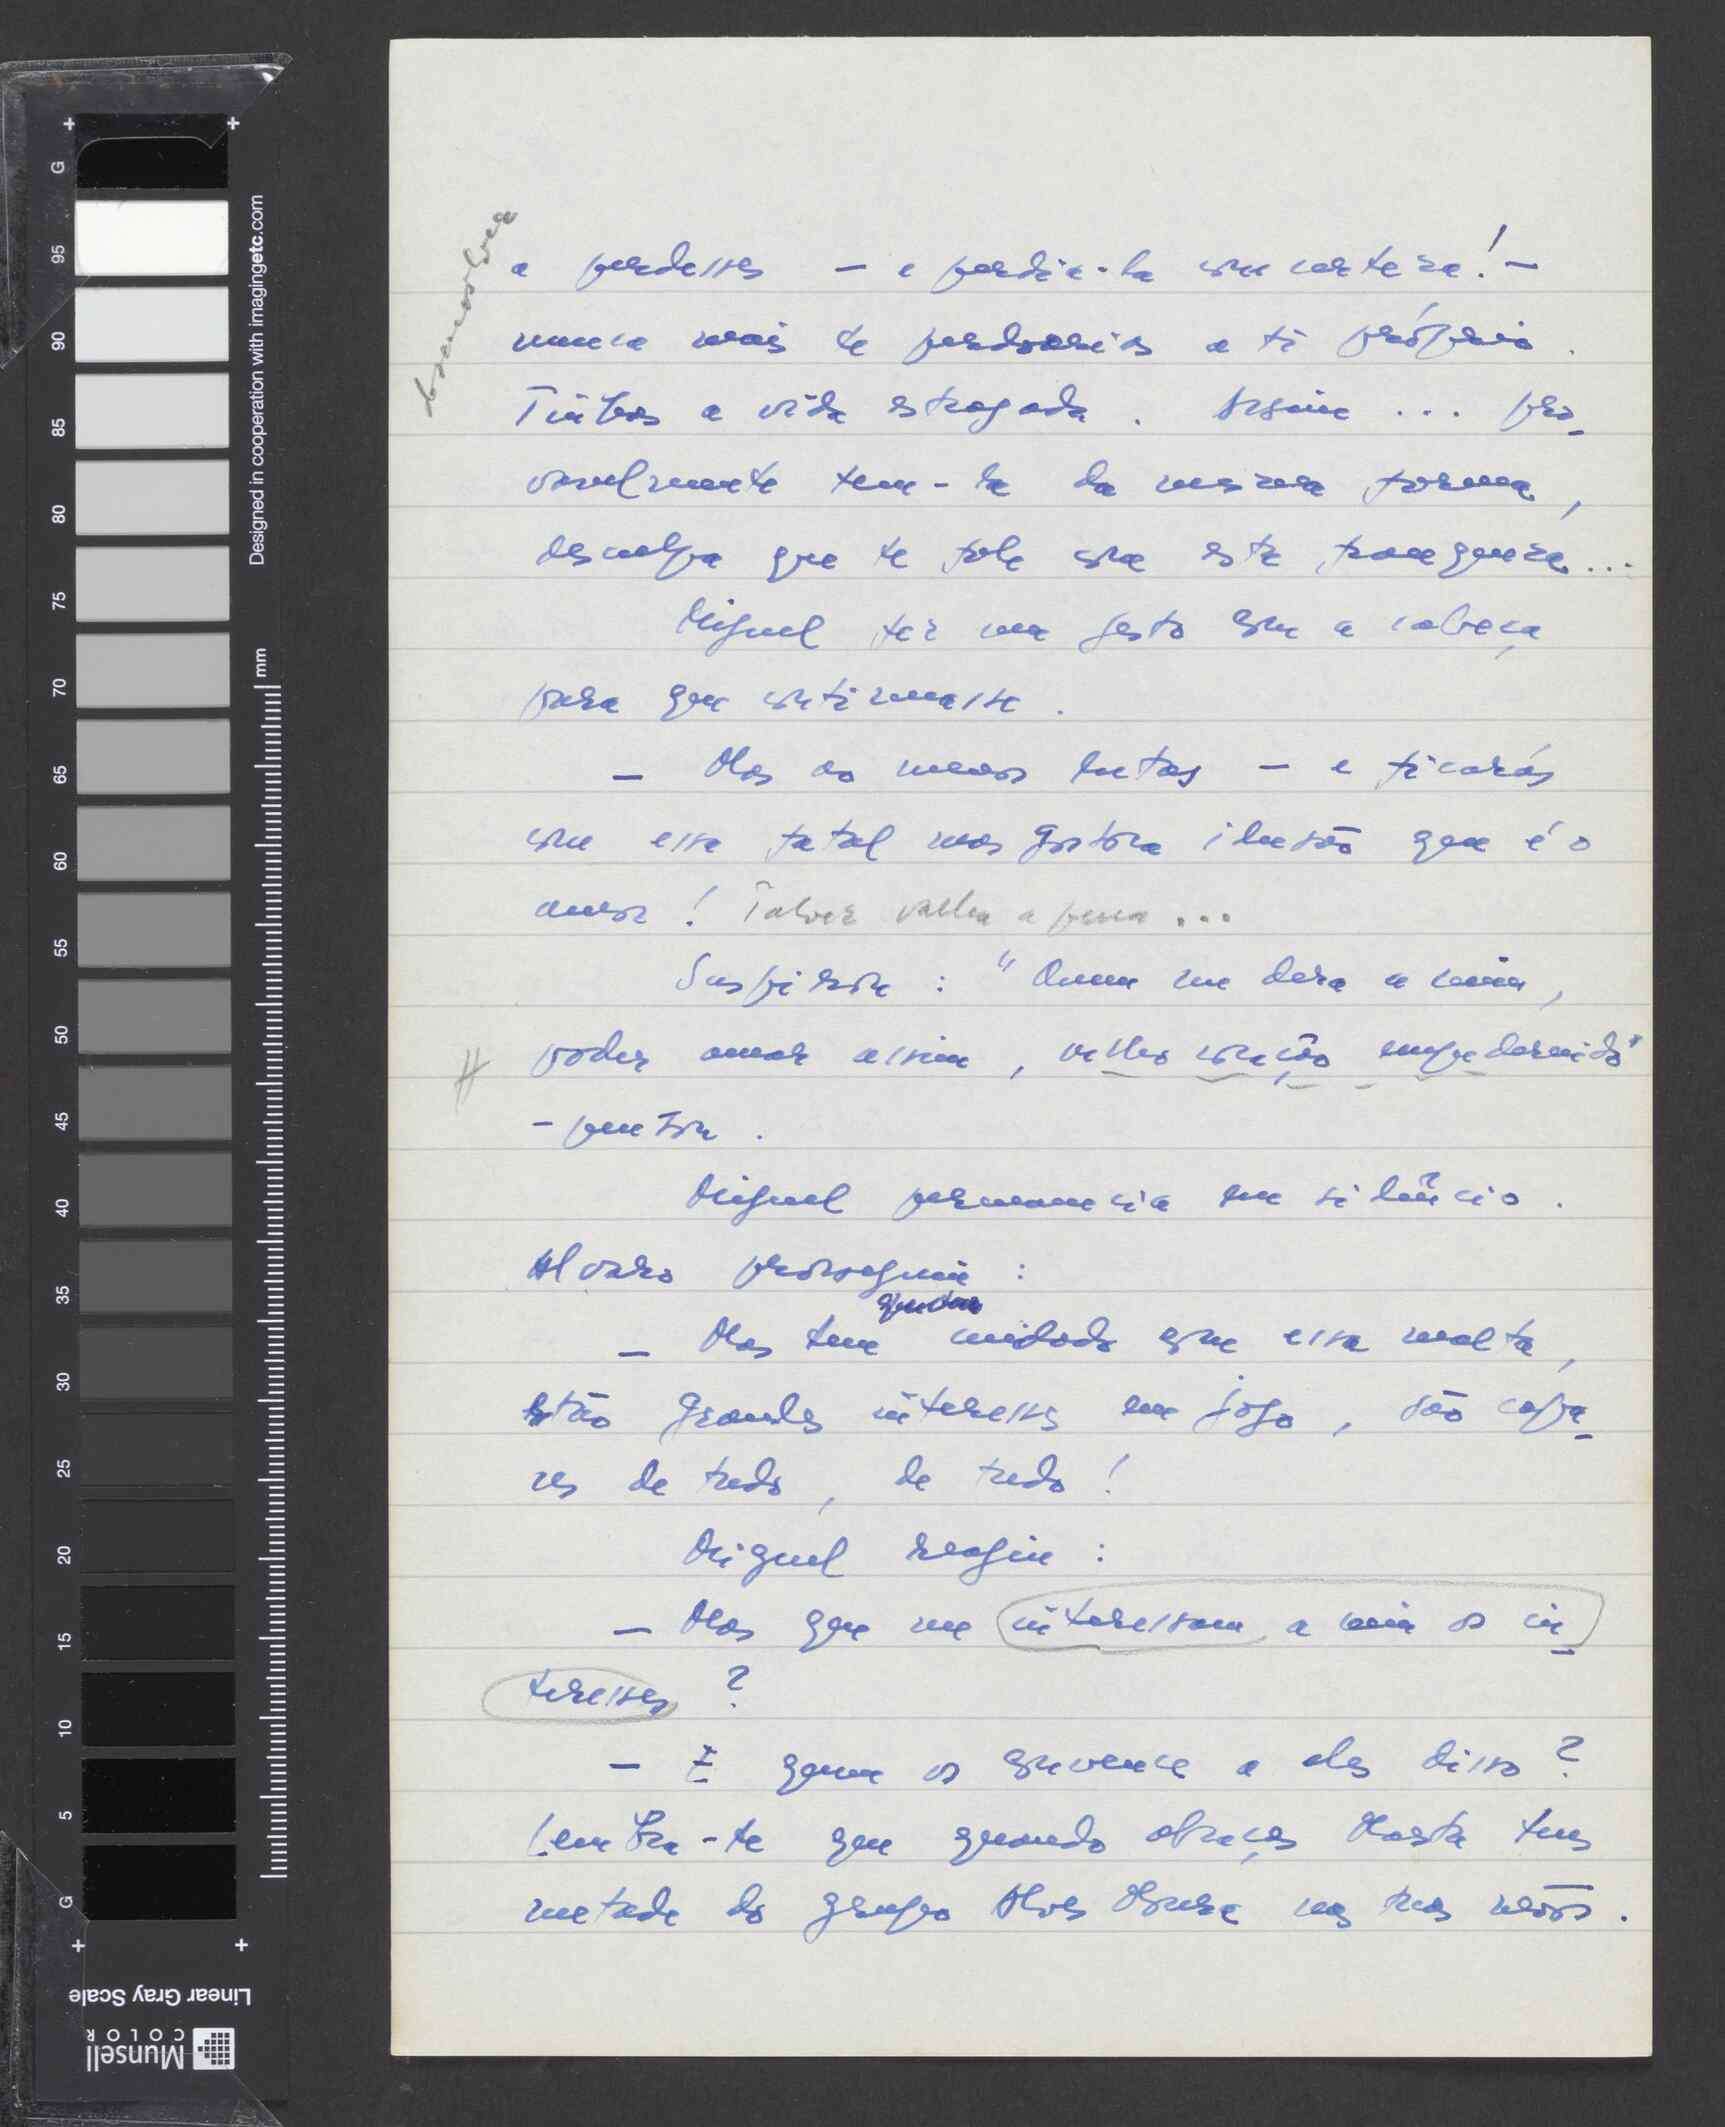 a perdesses — e perdia-la com certeza! —
nunca mais te perdoarias a ti próprio.
Tinhas a vida estragada. Assim... pro-
vavelmente tem-la da mesma forma,
desculpa que te fale com esta franqueza...
Miguel fez um gesto com a cabeça
para que continuasse.
— Mas ao menos lutas — e ficarás
com essa fatal mas gostosa ilusão que é o
amor! Talvez valha a pena...
Suspirou: "Quem me dera a mim,
poder amar assim, velho coração empedernido"
- pensou.
Miguel permanecia em silêncio.
Alvaro prosseguiu:
— Mas tem cuidado com essa malta,
estão grandes interesses em jogo, são capa-
zes de tudo, de tudo!
Miguel reagiu:
— Mas que me interessam a mim os in-
teresses?
— E quem os convence a eles disso?
Lembra-te que quando abraças Marta tens
metade do grupo Alves Moura nas tuas mãos.
G
95
90
85
80
75
70
65
60
55
50
45
40
35
30
25
20
15
10
5
G
Designed in cooperation with imagingetc.com
mm
Linear Gray Scale
Munsell
COLOR